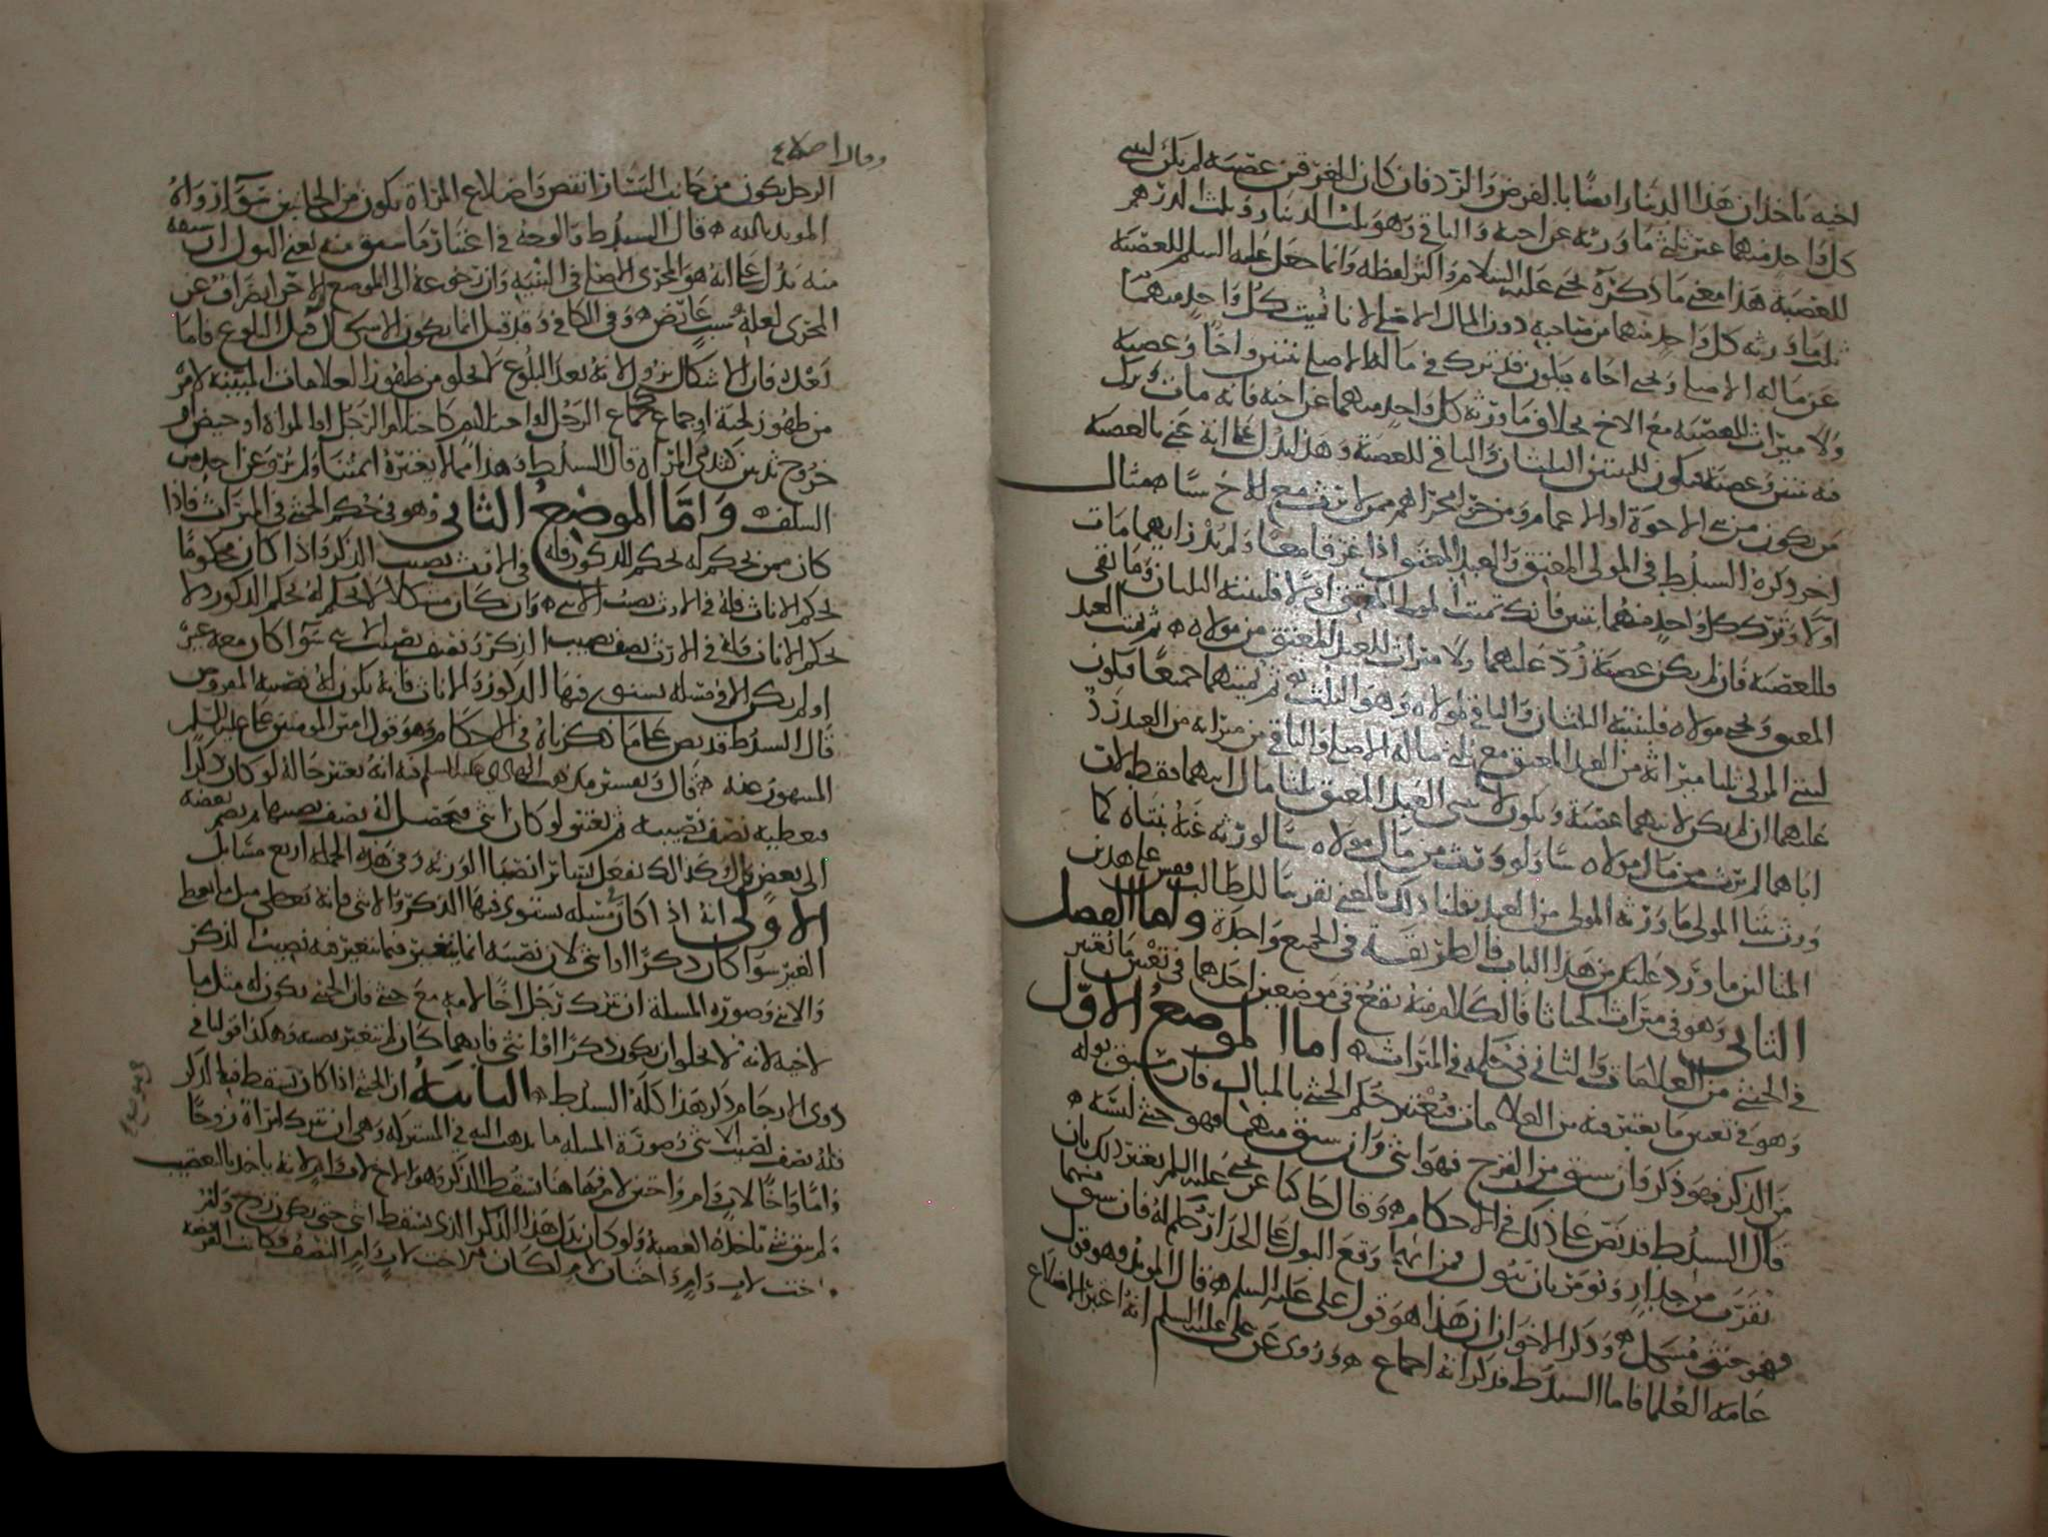 اخيه ياخذان هذا الدينار ايضا بالفرض والرد فان كان للغرقى عصبة لم يكن لبنتي
كل واحد منهما غير ثلثي ما ورثه عن اخيه والباقي وهو ثلث الدينار وثلث الدرهم
للعصبة هذا معنى ما ذكره يحيى عليه السلام واكثر لفظه وانما جعل عليه السلم للعصبة
ثلث ما ورثه كل واحد منهما من صاحبه دون المال الاصلي لانا نميت كل واحد منهما
عن ماله الاصلي ونحيي اخاه فيكون قد ترك في ماله الاصلي بنتين واخا وعصبة
ولا ميراث للعصبة مع الاخ بخلاف ما ورثه كل واحد منهما عن اخيه فانه مات وترك
فيه بنتين وعصبة فيكون للبنتين الثلثان والباقي للعصبة وهذا يدل على انه عنى بالعصبة
من يكون من بني الاخوة او الاعمام ومن جرى مجراهم ممن لا يرث مع الاخ شيا ه مثال
اخر ذكره السيد ط في المولى المعتق والعبد المعتق اذا غرقا معا ولم يدر ايهما مات
اولا وترك كل واحد منهما بنتين فانك تميت المولى المعتق اولا فلبنتيه الثلثان وما بقي
فللعصبة فان لم يكن عصبة رد عليهما ولا ميراث للعبد المعتق من مولاه ه ثم تميت العبد
المعتق وتحيي مولاه فلبنتيه الثلثان والباقي لمولاه وهو الثلث ثم تميتهما جميعا فيكون
لبنتي المولى ثلثا ميراثه من العبد المعتق مع ثلثي ماله الاصلي والباقي من ميراثه من العبد رد
عليهما ان لم يكن لابيهما عصبة ويكون لابنتي العبد المعتق ثلثا مال ابيهما فقط لان
اباهما لم يرث من مال مولاه شيا ولو ورث من مال مولاه شيا لورثه عنه بنتاه كما
ورث بنتا المولى ما ورثه المولى من العبد نقلنا ذلك بالمعنى تقريبا للطالب فقس على هذين
المثالين ما ورد عليك من هذا الباب فالطريقة في الجميع واحدة واما الفصل
الثاني وهو في ميراث الخناثا فالكلام منه يقع في موضعين احدهما في تعيين ما يعتبر
في الخنثى من العلامات والثاني في حكمه في الميراث ه اما الموضع الاول
وهو في تعيين ما يعتبر فيه من العلامات فيعتبر حكم الخنثى بالمبال فان سبق بوله
من الذكر فهو ذكر وان سبق من الفرج فهو انثى وان سبق منهما فهو خنثى لبسة ه
قال السيد ط قد نص على ذلك في الاحكام ه وقال حاكيا عن يحيى عليه السلم يعتبر ذلك بان
يقرب من جدار ويومر بان يبول فمن ايهما وقع البول على الجدار حكم له فان سبق منهما
فهو خنثى مشكل ه وذكر الاخوان ان هذا هو قول علي عليه السلم ه قال المويد وهو قول
عامة العلما فاما السيد ط فذكر انه اجماع ه وروى عن علي عليه السلم انه اعتبر الاضلاع
وقال اضلاع
الرجل يكون من جانب اليسار انقص واضلاع المراة يكون من الجانبين سوآ رواه
المويد بالله ه قال السيد ط والوجه في اعتبار ما سبق منه يعني البول ان سبقه
منه يدل على انه هو المجرى الاصلي في البنية وان رجوعه الى الموضع الاخر انصراف عن
المجرى لعلة بسبب عارض ه وفي الكافي وقد قيل انما يكون الاشكال قبل البلوغ فاما
بعده فان الاشكال يزول لانه بعد البلوغ لا يخلو من ظهور العلامات المبينة لامره
من ظهور لحية او جماع كجماع الرجل او احتلام كاحتلام الرجل او المراة او حيض او
خروج ثديين كثدي المراة قال السيد ط وهذا مما لا يعتبره ايمتنا ولم يرو عن احد من
السلف ه واما الموضع الثاني وهو في حكم الخنثى في الميراث فاذا
كان ممن يحكم له بحكم الذكور فله في الارث نصيب الذكر واذا كان محكوما
بحكم الاناث فله في الارث نصيب الانثى ه وان كان مشكلا لا يحكم له بحكم الذكور ولا
بحكم الاناث فله في الارث نصف نصيب الذكر ونصف نصيب الانثى سوآ كان معه غيره
او لم يكن الا في مسئلة يستوي فيها الذكور والاناث فانه يكون له نصيبه المفروض
قال السيد ط قد نص على ما ذكرناه في الاحكام وهو قول امير المومنين علي عليه السلم
المشهور عنه ه قال وتفسير مذهب الهادي عليه السلم فيه انه يعتبر حاله لو كان ذكرا
فيعطيه نصف نصيبه ثم يعتبر لو كان انثى فيحصل له نصف نصيبها ثم يضم بعضه
الى بعض قال وكذلك نفعل بساير انصبا الورثة وفي هذه الجملة اربع مسايل
الاولى انه اذا كان مسئلة يستوي فيها الذكر والانثى فانه يعطى مثل ما يعطى
الغير سوا كان ذكرا او انثى لان نصيبه انما يتغير فيما يتغير فيه نصيب الذكر
والانثى وصورة المسلة ان يترك رجل اخا لامه مع خنثى فان الخنثى يكون له مثل ما
لاخيه لانه لا يخلو ان يكون ذكرا او انثى فايهما كان لم يتغير نصيبه وهكذا قولنا في
ذوي الارحام ذكر هذا كله السيد ط ه الثانية ان الخنثى اذا كان يسقط فيها الذكر
فله نصف نصيب الانثى وصورة المسله ما يذهب اليه في المشتركة وهي ان تترك امراة زوجا
واما واخا لاب وام واختين لام فهاهنا يسقط الذكر وهو الاخ لاب وام لانه ياخذ بالتعصيب
ولم يبق شي تاخذه العصبة ولو كان بدل هذا الذكر الذي يسقط انثى حتى يكون زوج وام
اخت لاب وام واختان لام لكان للاخت لاب وام النصف فكانت الفريضة